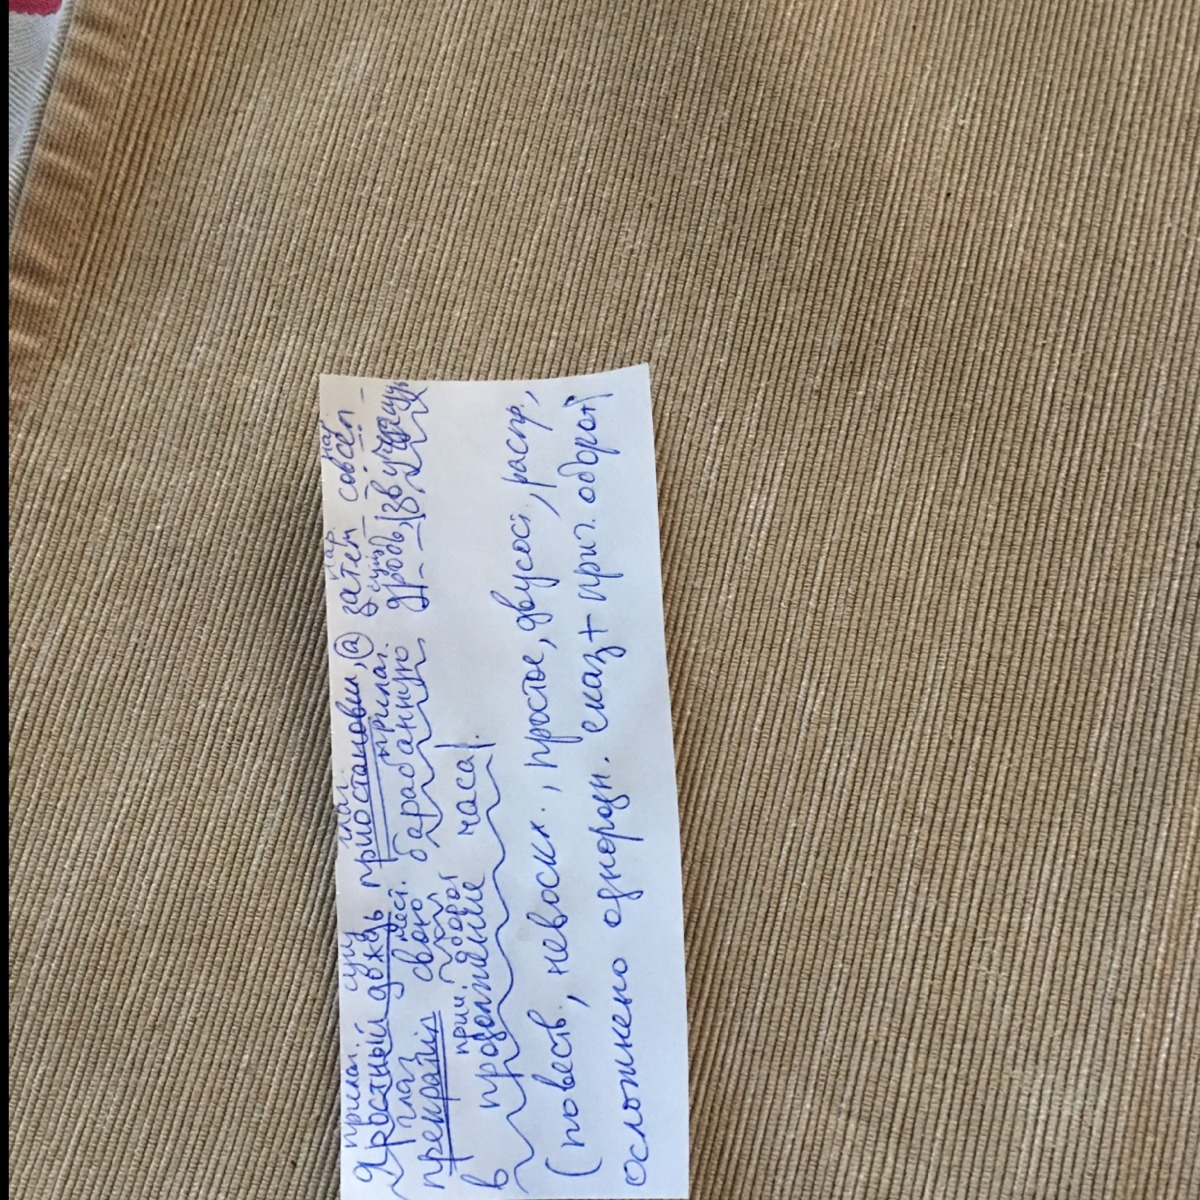 прилаг. сущ глаг. нар нар
Яростный дождь приостановил, а затем совсем
глаг мест. прилаг. сущ
прекратил свою барабанную дробь, |звучащую
прич. оборот
в продолжение часа|.
(повеств., невоскл., простое, двусост., распр.,
осложнено однородн. сказ + прич. оборот)